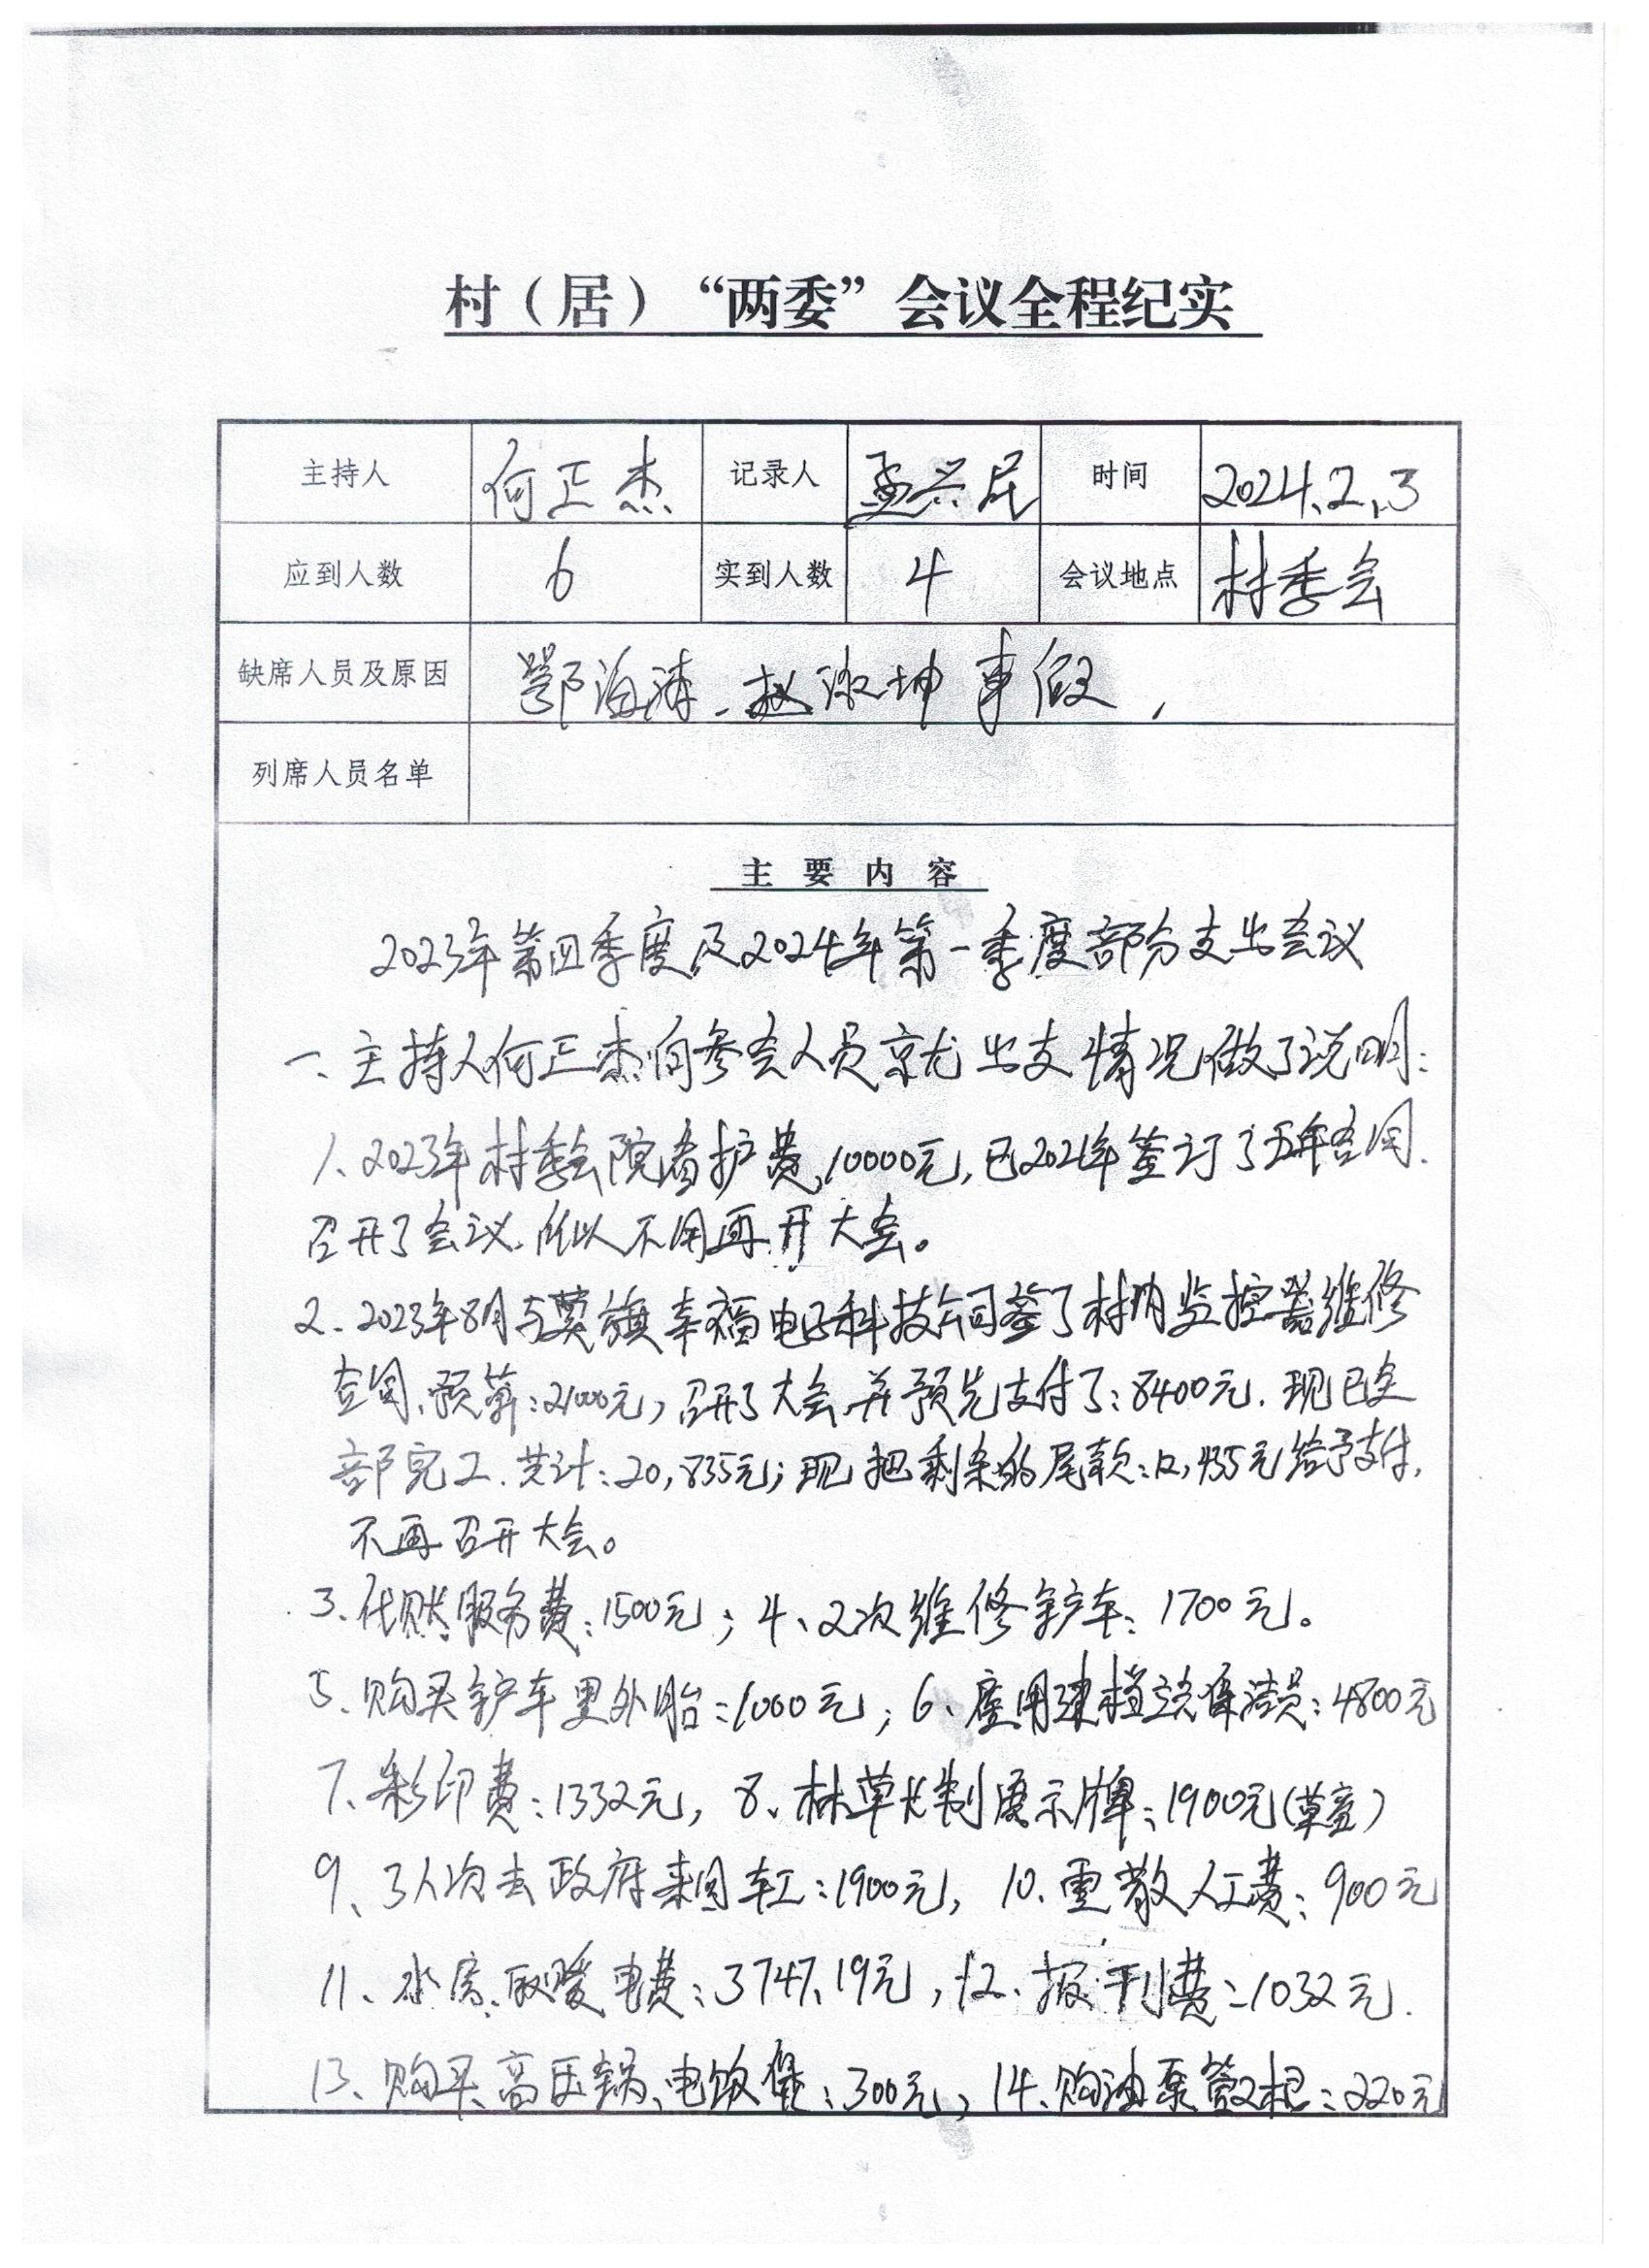 村（居）“两委”会议全程纪实
主持人 何正杰 记录人 孟兴民 时间 2024.2.3
应到人数 6 实到人数 4 会议地点 村委会
缺席人员及原因 鄂海涛、赵淑坤事假，
列席人员名单
主要内容
2023年第四季度及2024年第一季度部分支出会议
一、主持人何正杰向参会人员就出支情况做了说明：
1、2023年村委会院看护费，10000元，已2021年签订了五年合同.
召开了会议、所以不用再开大会。
2、2023年8月与莫旗幸福电子科技公司签了村内监控器维修
合同、预算：21000元，召开了大会，并预先支付了：8400元．现已全
部完工．共计：20,835元；现把剩余的尾款：12,435元给予支付，
不再召开大会。
3、代账服务费：1500元；4、2次维修铲车：1700元。
5、购买铲车里外胎：1000元；6、雇用建档立卡保洁员：4800元
7、彩印费：1332元，8、林草长制展示牌：1900元(草畜)
9、3人次去政府来回车工：1900元，10、零散人工费：900元
11、水房、取暖电费：3747.19元，12、报刊费：1032元．
13、购买高压锅、电饭煲：300元，14、购油泵管2根：220元